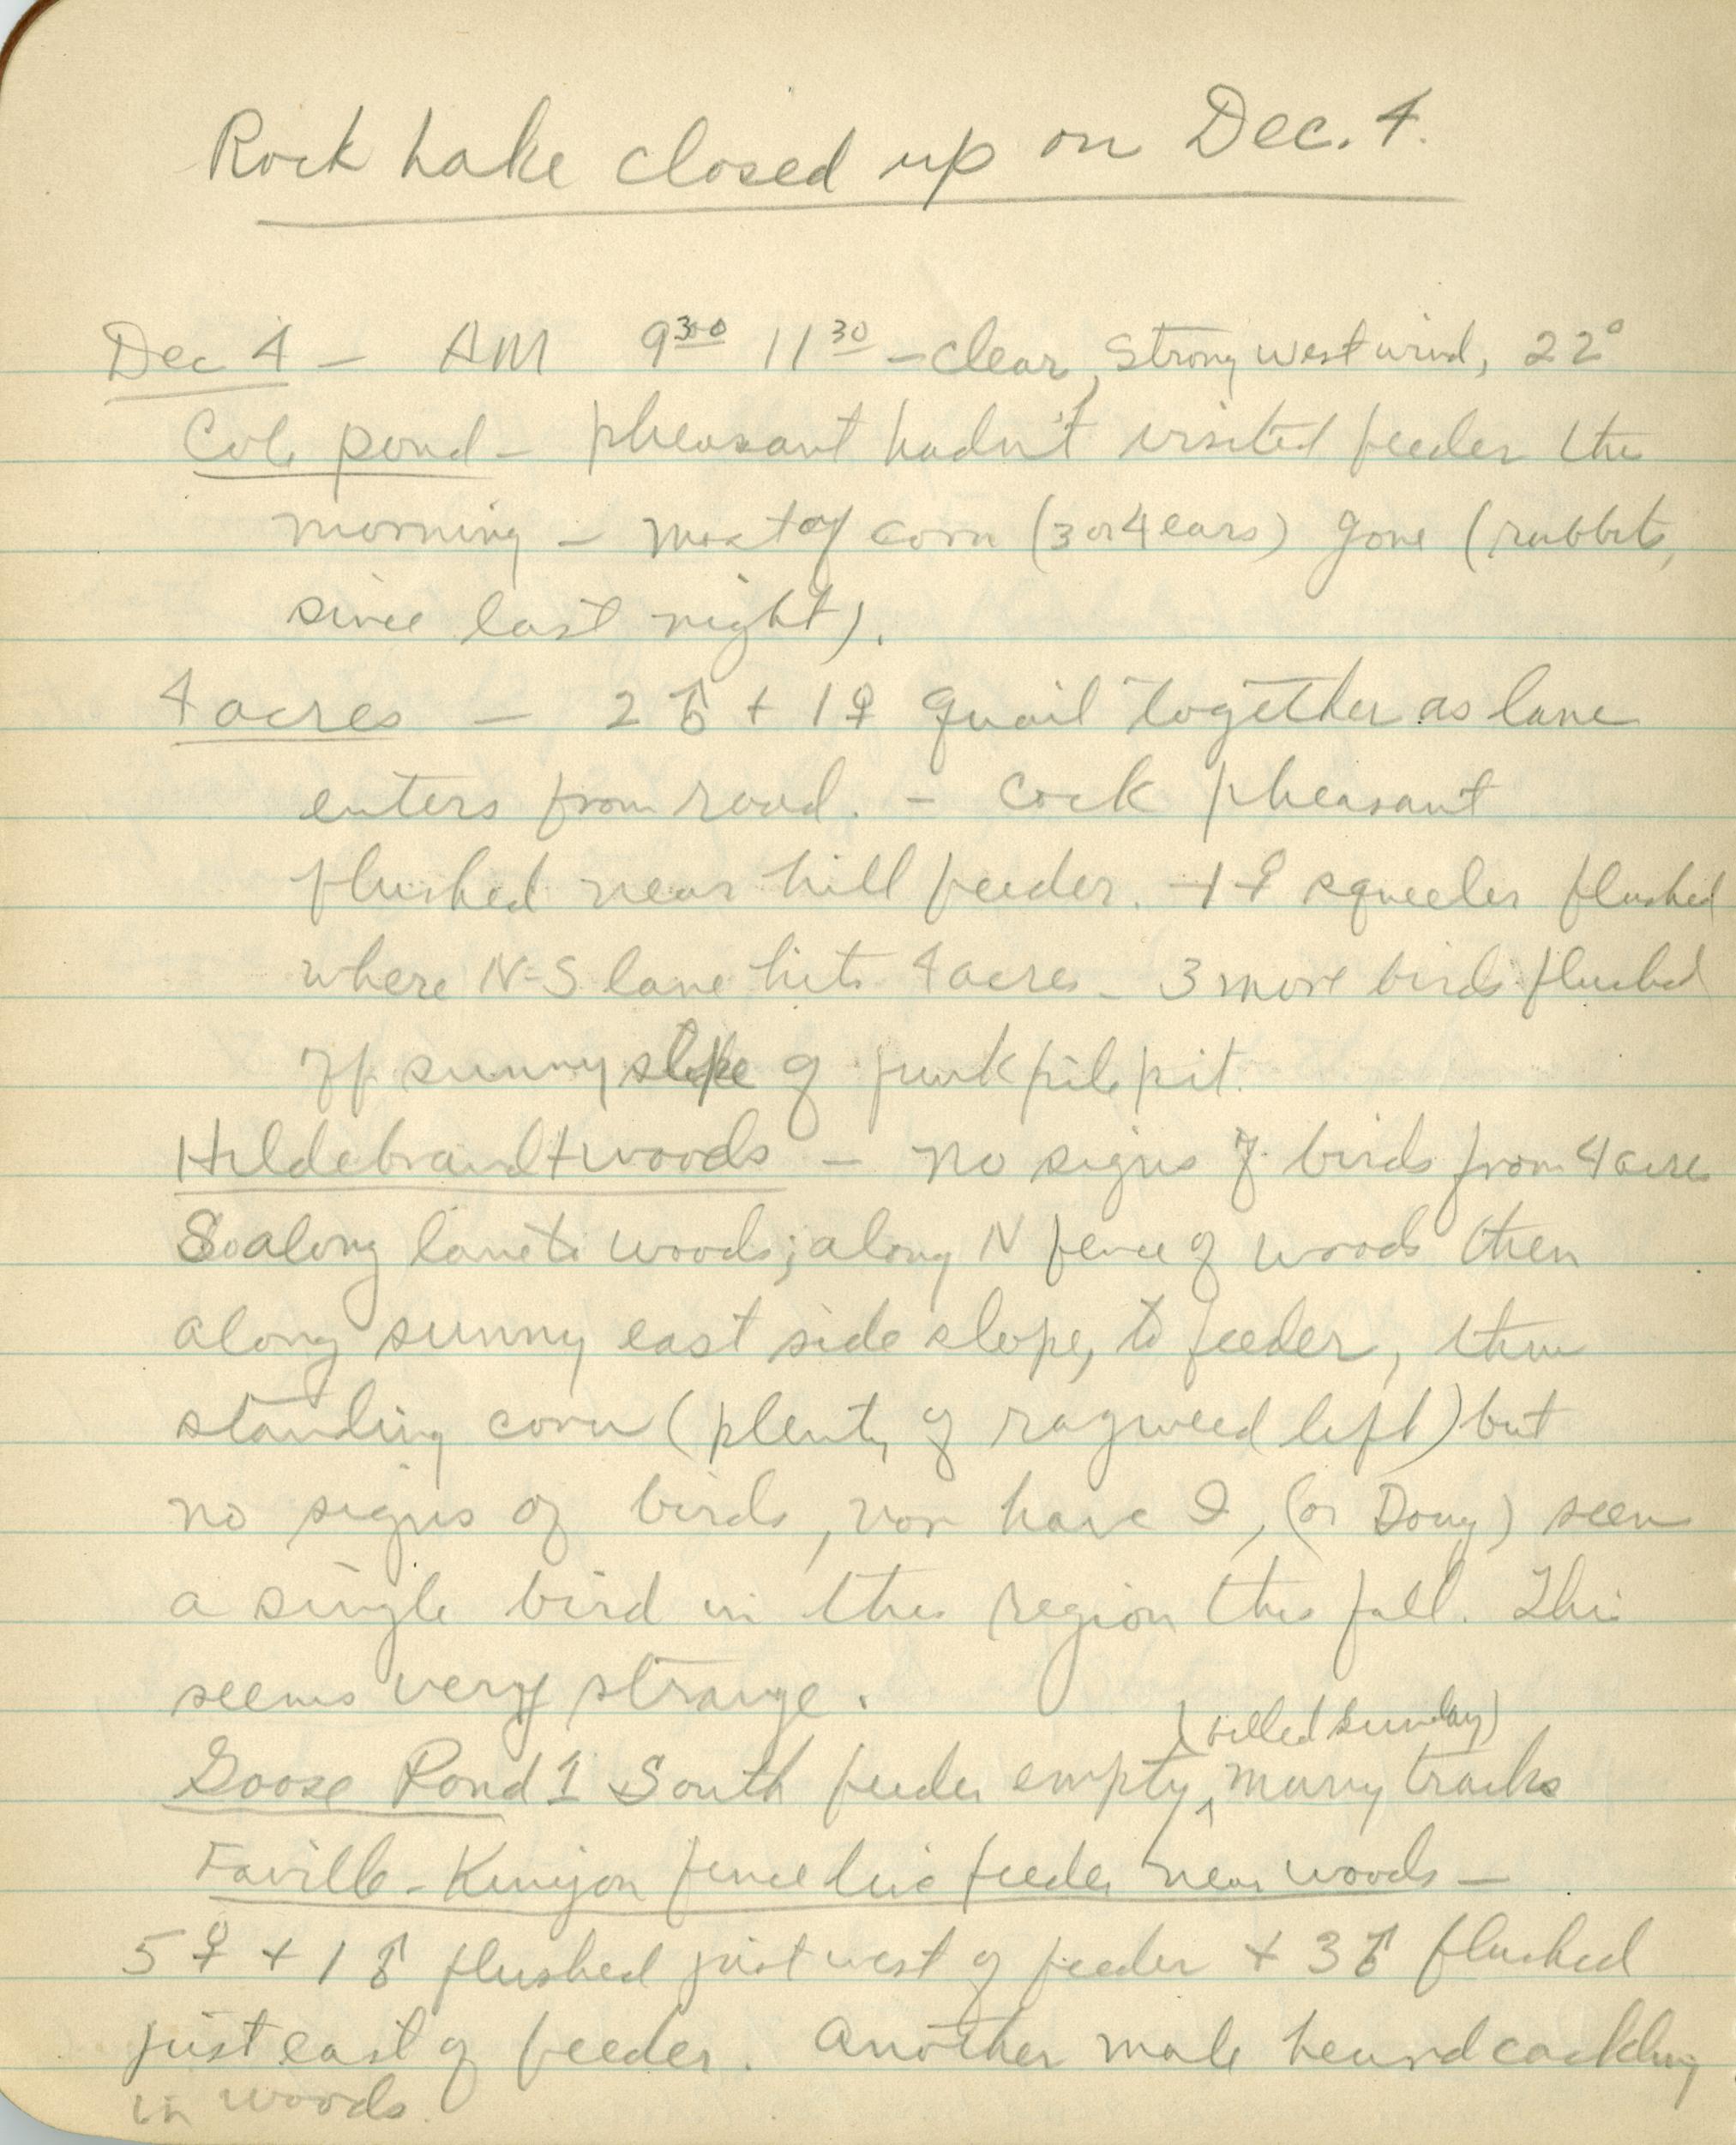 Rock Lake closed up on Dec. 4.
Dec 4 - AM 9³⁰ 11³⁰ - clear, strong west wind, 22°
Cole pond - pheasant hadn't visited feeder this
morning - most of corn (3 or 4 ears) gone (rabbits,
since last night).
4 acres - 2♂ + 1♀ quail together as lane
enters from road. - Cock pheasant
flushed near hill feeder. - 1♀ squeeler flushed
where N-S lane hits 4 acres - 3 more birds flushed
off sunny slope of junk pile pit.
Hildebrandt woods - no signs of birds from 4 acres
So along lane to woods; along N fence of woods then
along sunny east side slope, to feeder, thru
standing corn (plenty of ragweed left) but
no signs of birds, nor have I, (or Doug) seen
a single bird in this region this fall. This
seems very strange.
(filled Sunday)
Goose Pond 1 South feeder empty, many tracks
Faville-Kunjon fence line feeder near woods -
5♀ + 1♂ flushed just west of feeder + 3♂ flushed
just east of feeder. Another male heard cackling
in woods.